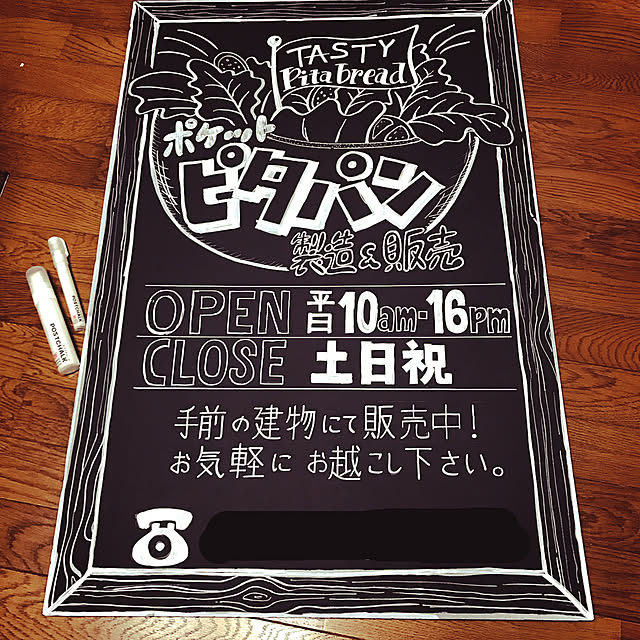 TASTY
Pita bread
ポケット
ピタパン
製造&販売
OPEN 平日 10am-16pm
CLOSE 土日祝
手前の建物にて販売中!
お気軽に お越し下さい。
POSTCHALK
POSTCHALK